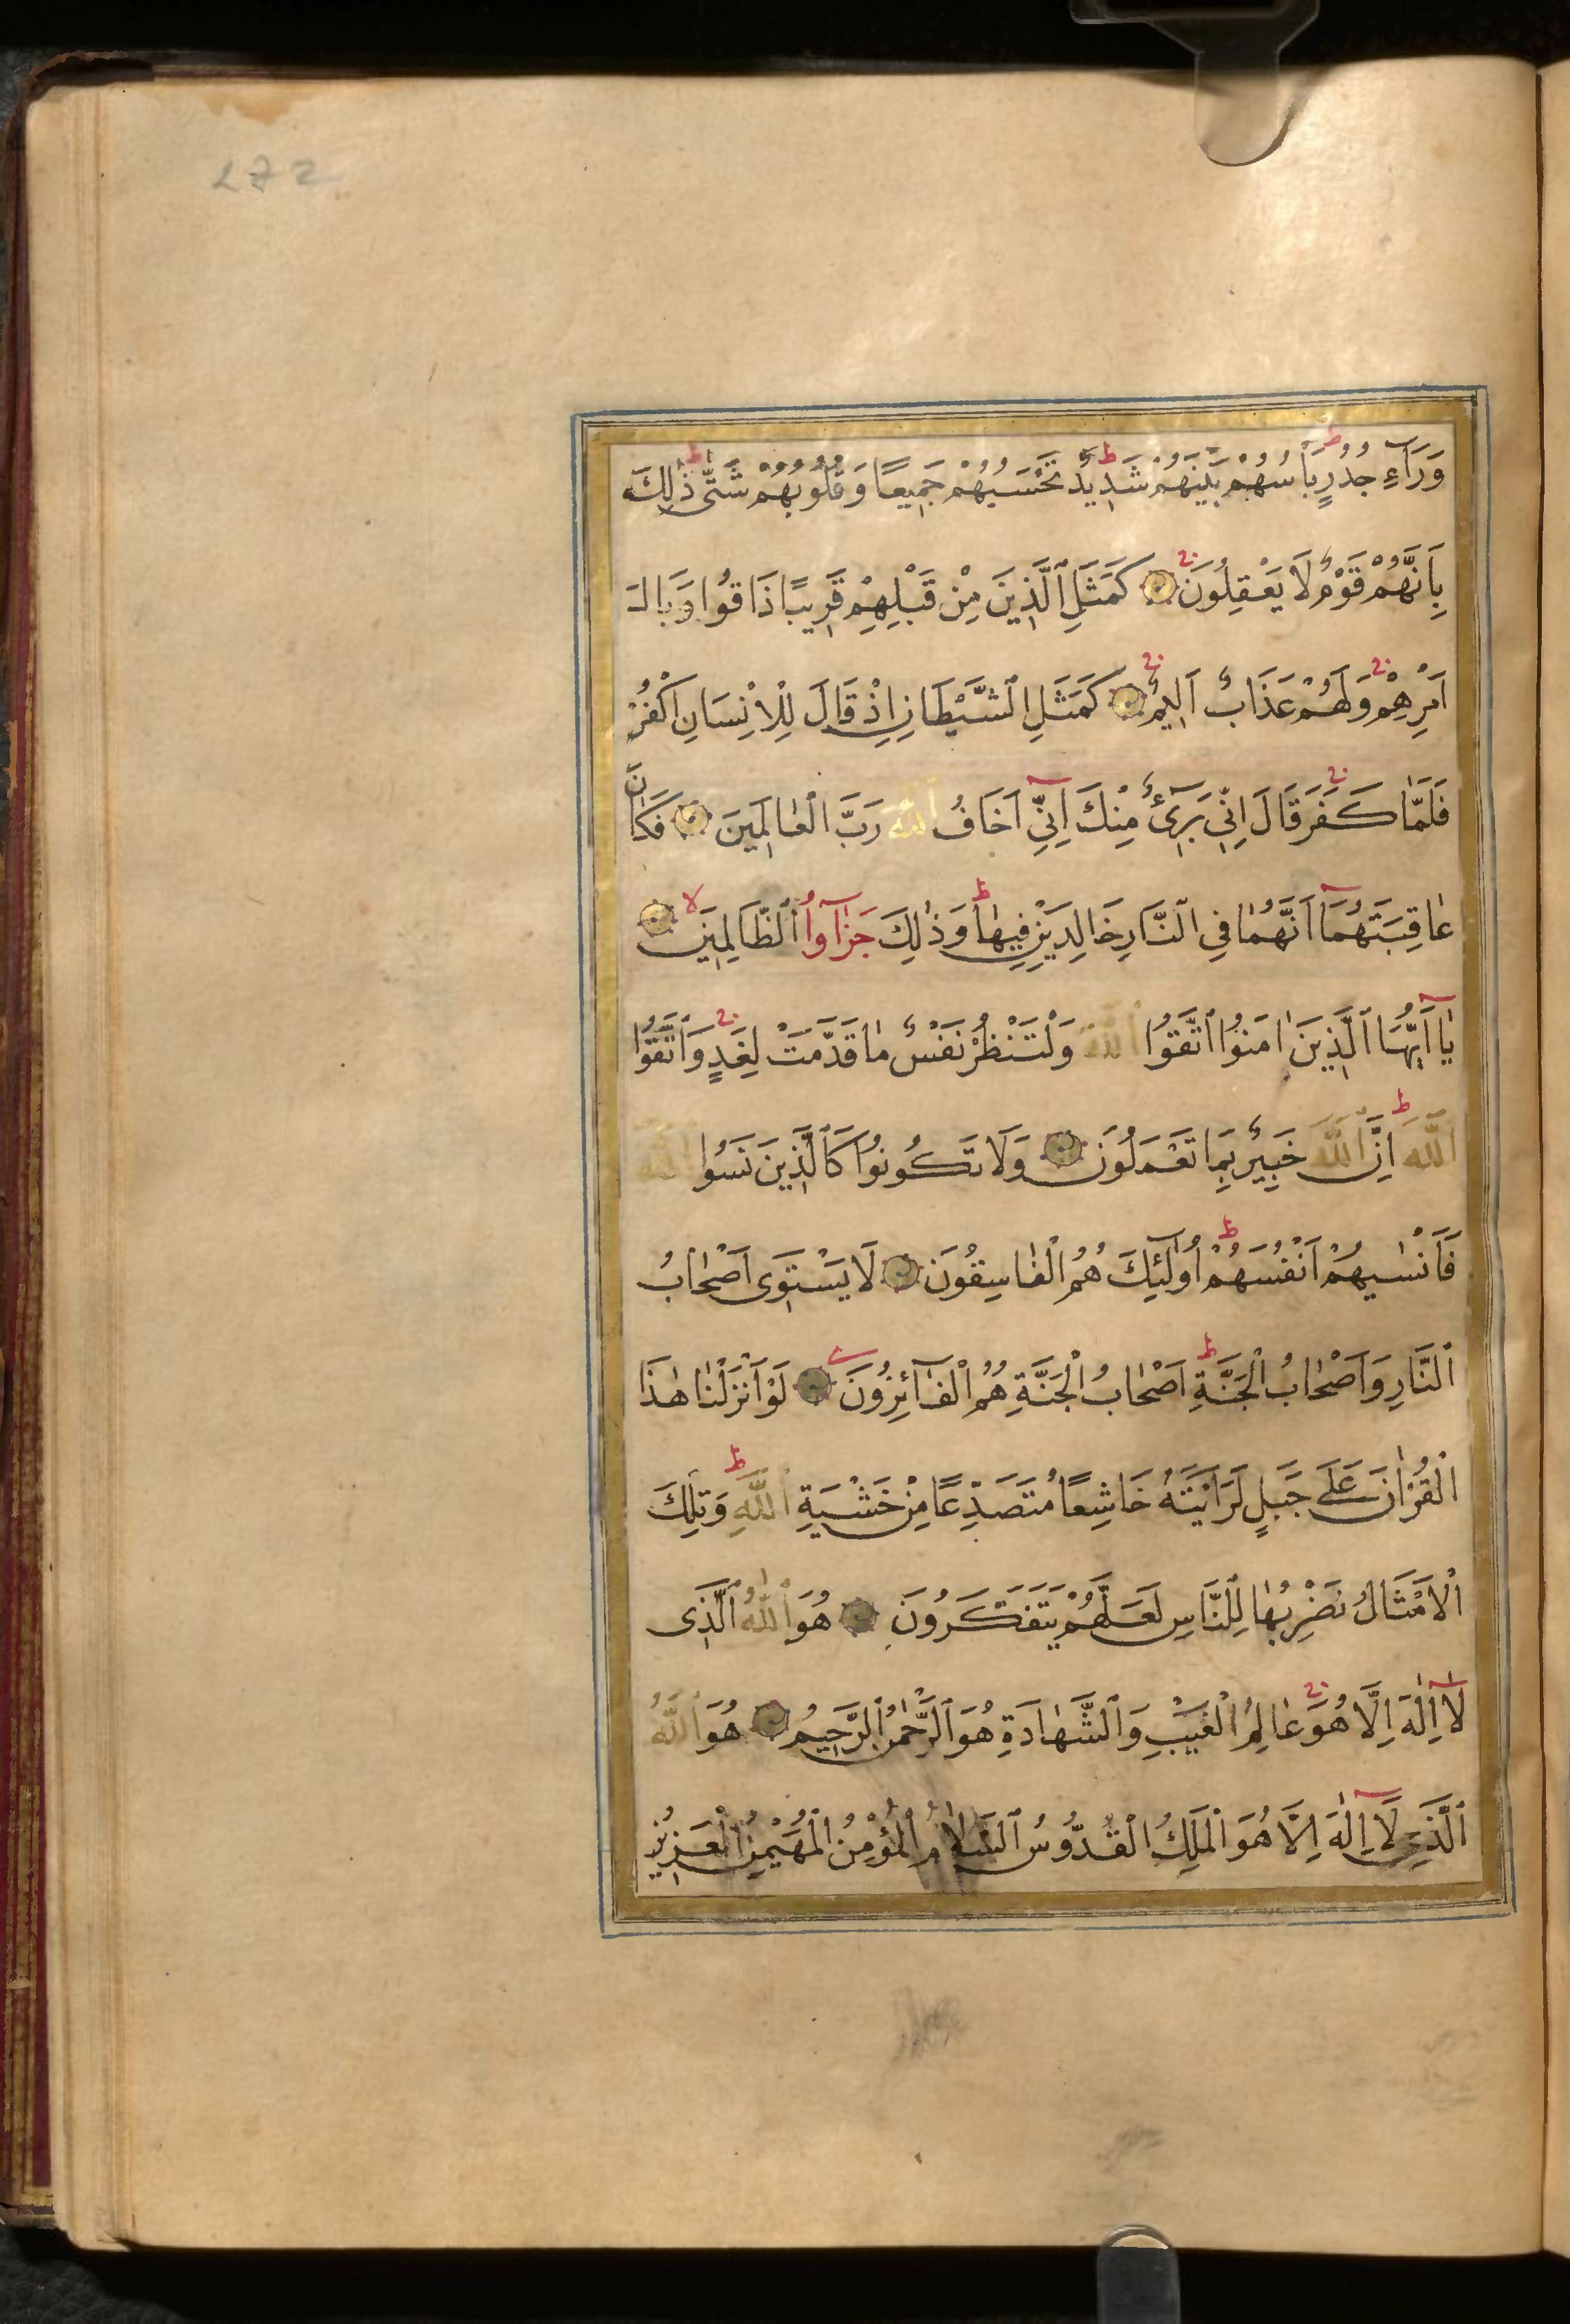 272
وَرَآءِ جُدُرٍ بَأْسُهُمْ بَيْنَهُمْ شَدِيدٌ تَحْسَبُهُمْ جَمِيعًا وَقُلُوبُهُمْ شَتّٰى ذٰلِكَ
بِاَنَّهُمْ قَوْمٌ لَا يَعْقِلُونَ كَمَثَلِ ٱلَّذِينَ مِنْ قَبْلِهِمْ قَرِيبًا ذَاقُوا وَبَالَ
اَمْرِهِمْ وَلَهُمْ عَذَابٌ اَلِيمٌ كَمَثَلِ ٱلشَّيْطَانِ اِذْ قَالَ لِلْاِنْسَانِ اكْفُرْ
فَلَمَّا كَفَرَ قَالَ اِنِّى بَرِىٓءٌ مِنْكَ اِنِّىٓ اَخَافُ ٱللّٰهَ رَبَّ الْعٰالَمِينَ فَكَانَ
عٰاقِبَتَهُمَا اَنَّهُمٰا فِى ٱلنَّارِ خَالِدَيْنِ فِيهٰا وَذٰلِكَ جَزٰٓاوُا ٱلظَّالِمِينَ
يٰٓا اَيُّهَا ٱلَّذِينَ اٰمَنُوا ٱتَّقُوا ٱللّٰهَ وَلْتَنْظُرْ نَفْسٌ مٰا قَدَّمَتْ لِغَدٍ وَٱتَّقُوا
ٱللّٰهَ اِنَّ ٱللّٰهَ خَبِيرٌ بِمَا تَعْمَلُونَ وَلَا تَكُونُوا كَٱلَّذِينَ نَسُوا ٱللّٰهَ
فَاَنْسٰيهُمْ اَنْفُسَهُمْ اُولٰٓئِكَ هُمُ الْفٰاسِقُونَ لَا يَسْتَوِى اَصْحٰابُ
ٱلنَّارِ وَاَصْحٰابُ الْجَنَّةِ اَصْحٰابُ الْجَنَّةِ هُمُ الْفَٓائِزُونَ لَوْ اَنْزَلْنٰا هٰذَا
الْقُرْاٰنَ عَلٰى جَبَلٍ لَرَاَيْتَهُ خَاشِعًا مُتَصَدِّعًا مِنْ خَشْيَةِ ٱللّٰهِ وَتِلْكَ
الْاَمْثَالُ نَضْرِبُهٰا لِلنَّاسِ لَعَلَّهُمْ يَتَفَكَّرُونَ هُوَ ٱللّٰهُ ٱلَّذِى
لَٓا اِلٰهَ اِلَّا هُوَ عٰالِمُ الْغَيْبِ وَٱلشَّهٰادَةِ هُوَ ٱلرَّحْمٰنُ ٱلرَّحِيمُ هُوَ ٱللّٰهُ
ٱلَّذِى لَٓا اِلٰهَ اِلَّا هُوَ الْمَلِكُ الْقُدُّوسُ ٱلسَّلَامُ الْمُؤْمِنُ الْمُهَيْمِنُ الْعَزِيزُ